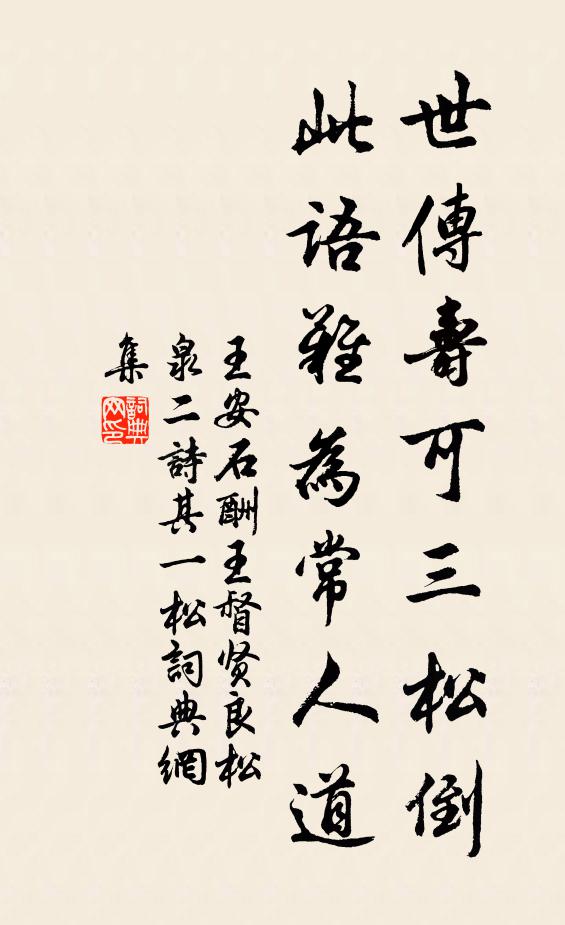 世傳壽可三松倒
此語難為常人道
王安石酬王督贤良松
泉二詩其一松詞典網
集
詞典網印